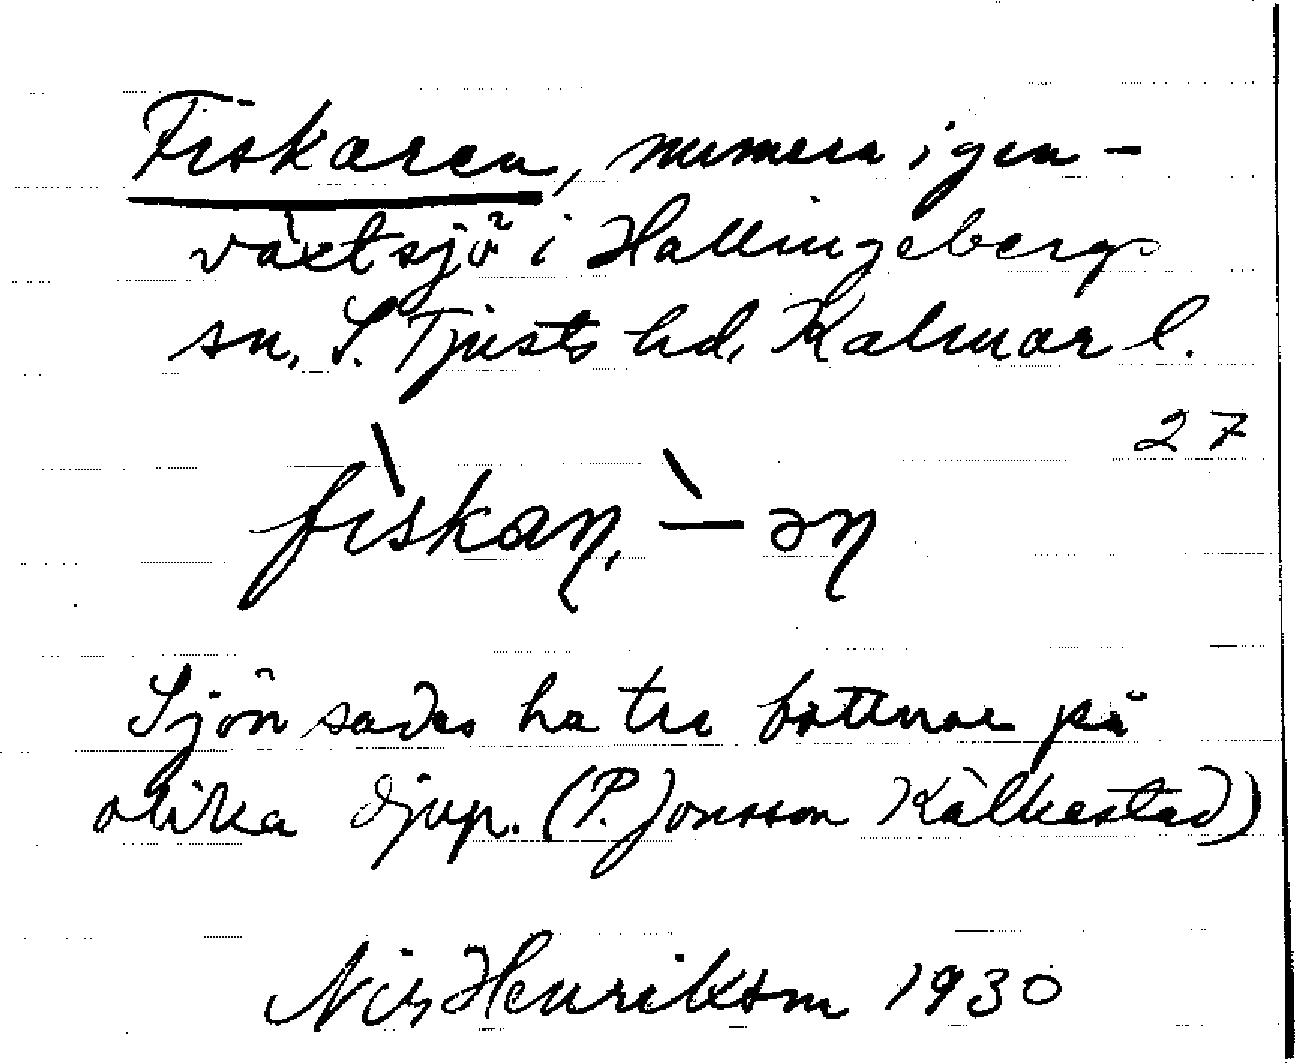 Fiskaren, numera igen-
växt sjö i Hallingebergs
sn, S. Tjusts hd, Kalmar l.
27
fìskaɳ, `— əɳ
Sjön sades ha tre bottnar på
olika djup. (P. Jonsson Kälkestad)
Nils Henrikson 1930